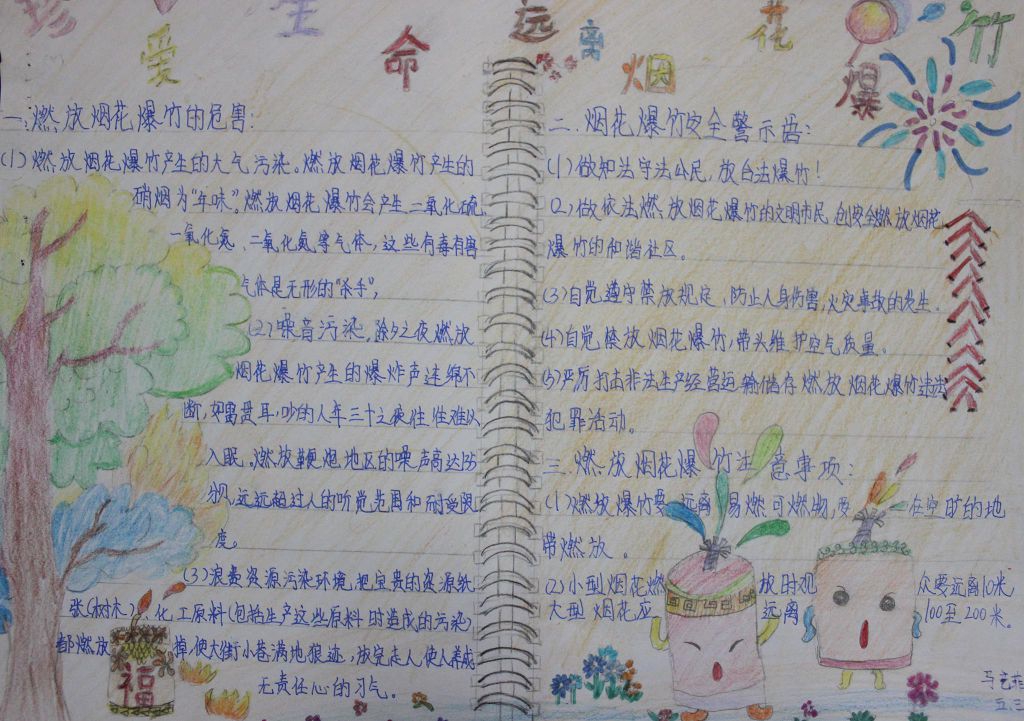 珍爱生命远离烟花爆竹
一、燃放烟花爆竹的危害:
(1)燃放烟花爆竹产生的大气污染。燃放烟花爆竹产生的
硝烟为“年味”。燃放烟花爆竹会产生二氧化硫,
一氧化氮、二氧化氮等气体,这些有毒有害
气体是无形的“杀手”,
(2)噪音污染,除夕之夜燃放
烟花爆竹产生的爆炸声连绵不
断,如雷贯耳,吵的人年三十之夜往往难以
入眠。燃放鞭炮地区的噪声高达135
分贝,远远超过人的听觉范围和耐受限
度。
(3)浪费资源污染环境,把宝贵的资源纸
张(树木)、化工原料(包括生产这些原料时造成的污染)
都燃放掉,使大街小巷满地狼迹,放完走人使人养成
无责任心的习气。
福
二.烟花爆竹安全警示语:
(1)做知法守法公民,放合法爆竹!
(2)做依法燃放烟花爆竹的文明市民,创安全燃放烟花
爆竹的和谐社区。
(3)自觉遵守禁放规定,防止人身伤害,火灾事故的发生。
(4)自觉禁放烟花爆竹,带头维护空气质量。
(5)严厉打击非法生产经营运输储存燃放烟花爆竹违法
犯罪活动。
三.燃放烟花爆竹注意事项:
(1)燃放爆竹要远离易燃可燃物,要在空旷的地
带燃放。
(2)小型烟花燃放时观众要远离10米,
大型烟花应远离100至200米。
五.三